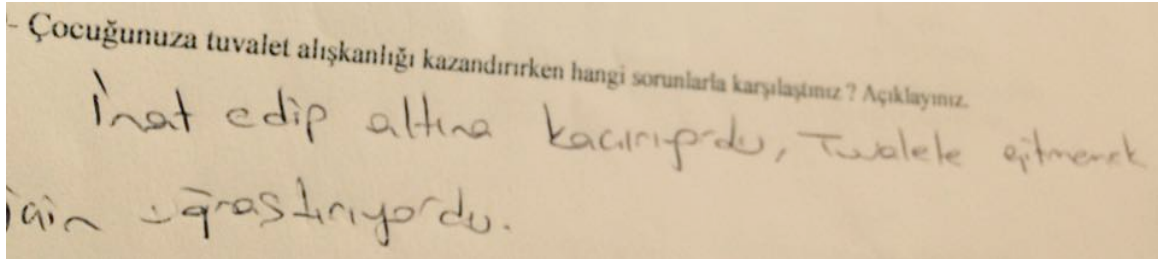 - Çocuğunuza tuvalet alışkanlığı kazandırırken hangi sorunlarla karşılaştınız? Açıklayınız.
İnat edip altına kaçırıyordu, Tuvalete gitmemek
için uğraştırıyordu.